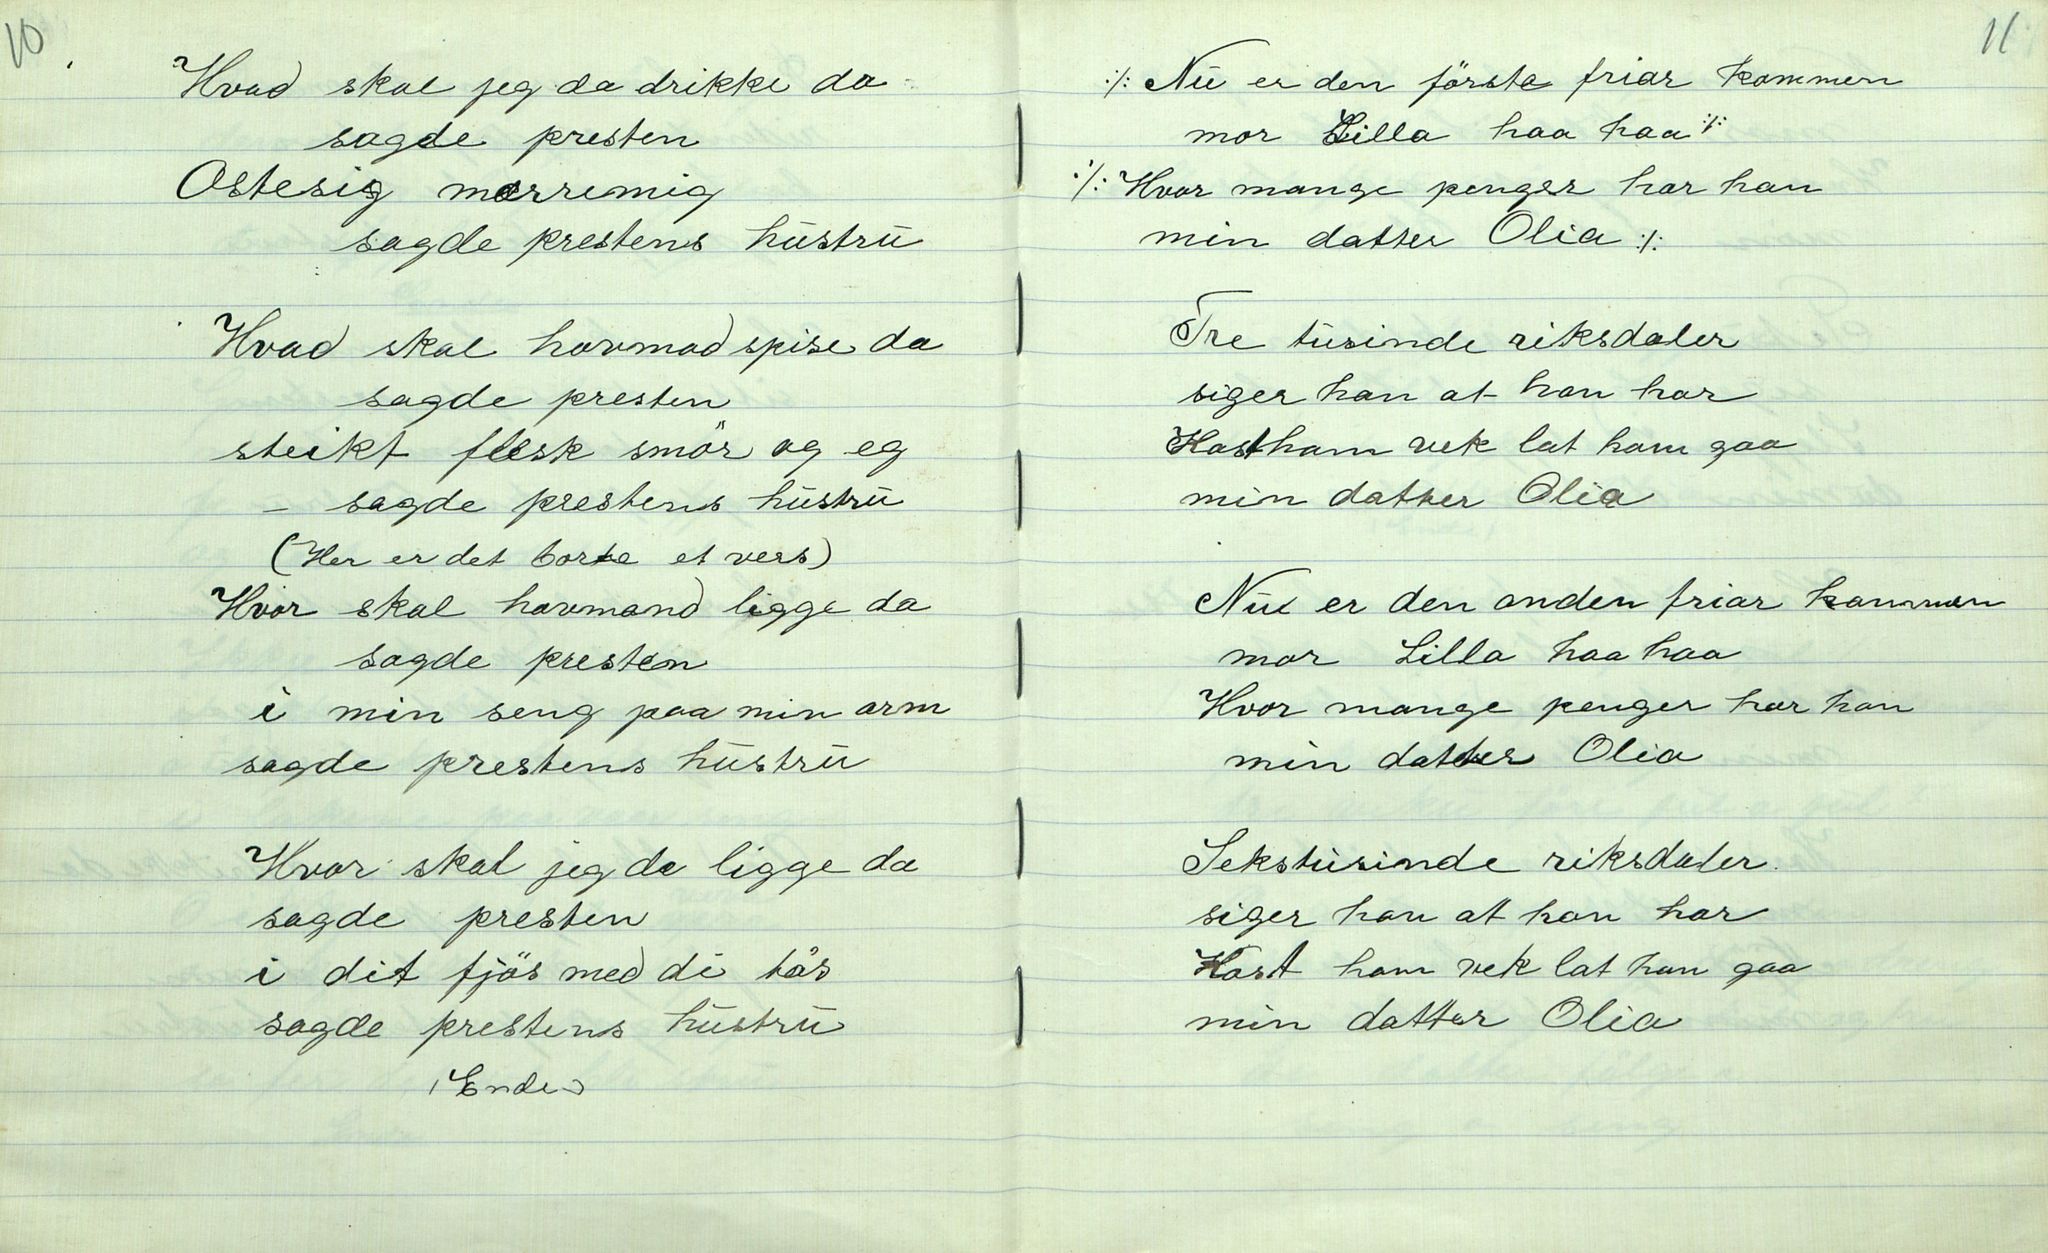 10
Hvad skal jeg da drikke da
sagde presten
Ostesig merremig
sagde prestens hüstrü
Hvad skal havmad spise da
sagde presten
steikt flesk smör og eg
– sagde prestens hüstrü
(Her er det borte et vers)
Hvor skal havmand ligge da
sagde presten
i min seng paa min arm
sagde prestens hüstrü
Hvor skal jeg da ligge da
sagde presten
i dit fjös med di tös
sagde prestens hüstrü
(Ende)
11
:/: Nü er den förste friar kommen
mor Lilla haa haa :/:
:/: Hvor mange penger har han
min datter Olia :/:
Tre tüsinde riksdaler
siger han at han har
Kast ham vek lat ham gaa
min datter Olia
Nü er den anden friar kommen
mor Lilla haa haa
Hvor mange penger har han
min datter Olia
Sekstüsinde riksdaler.
siger han at han har
Kast ham vek lat han gaa
min datter Olia